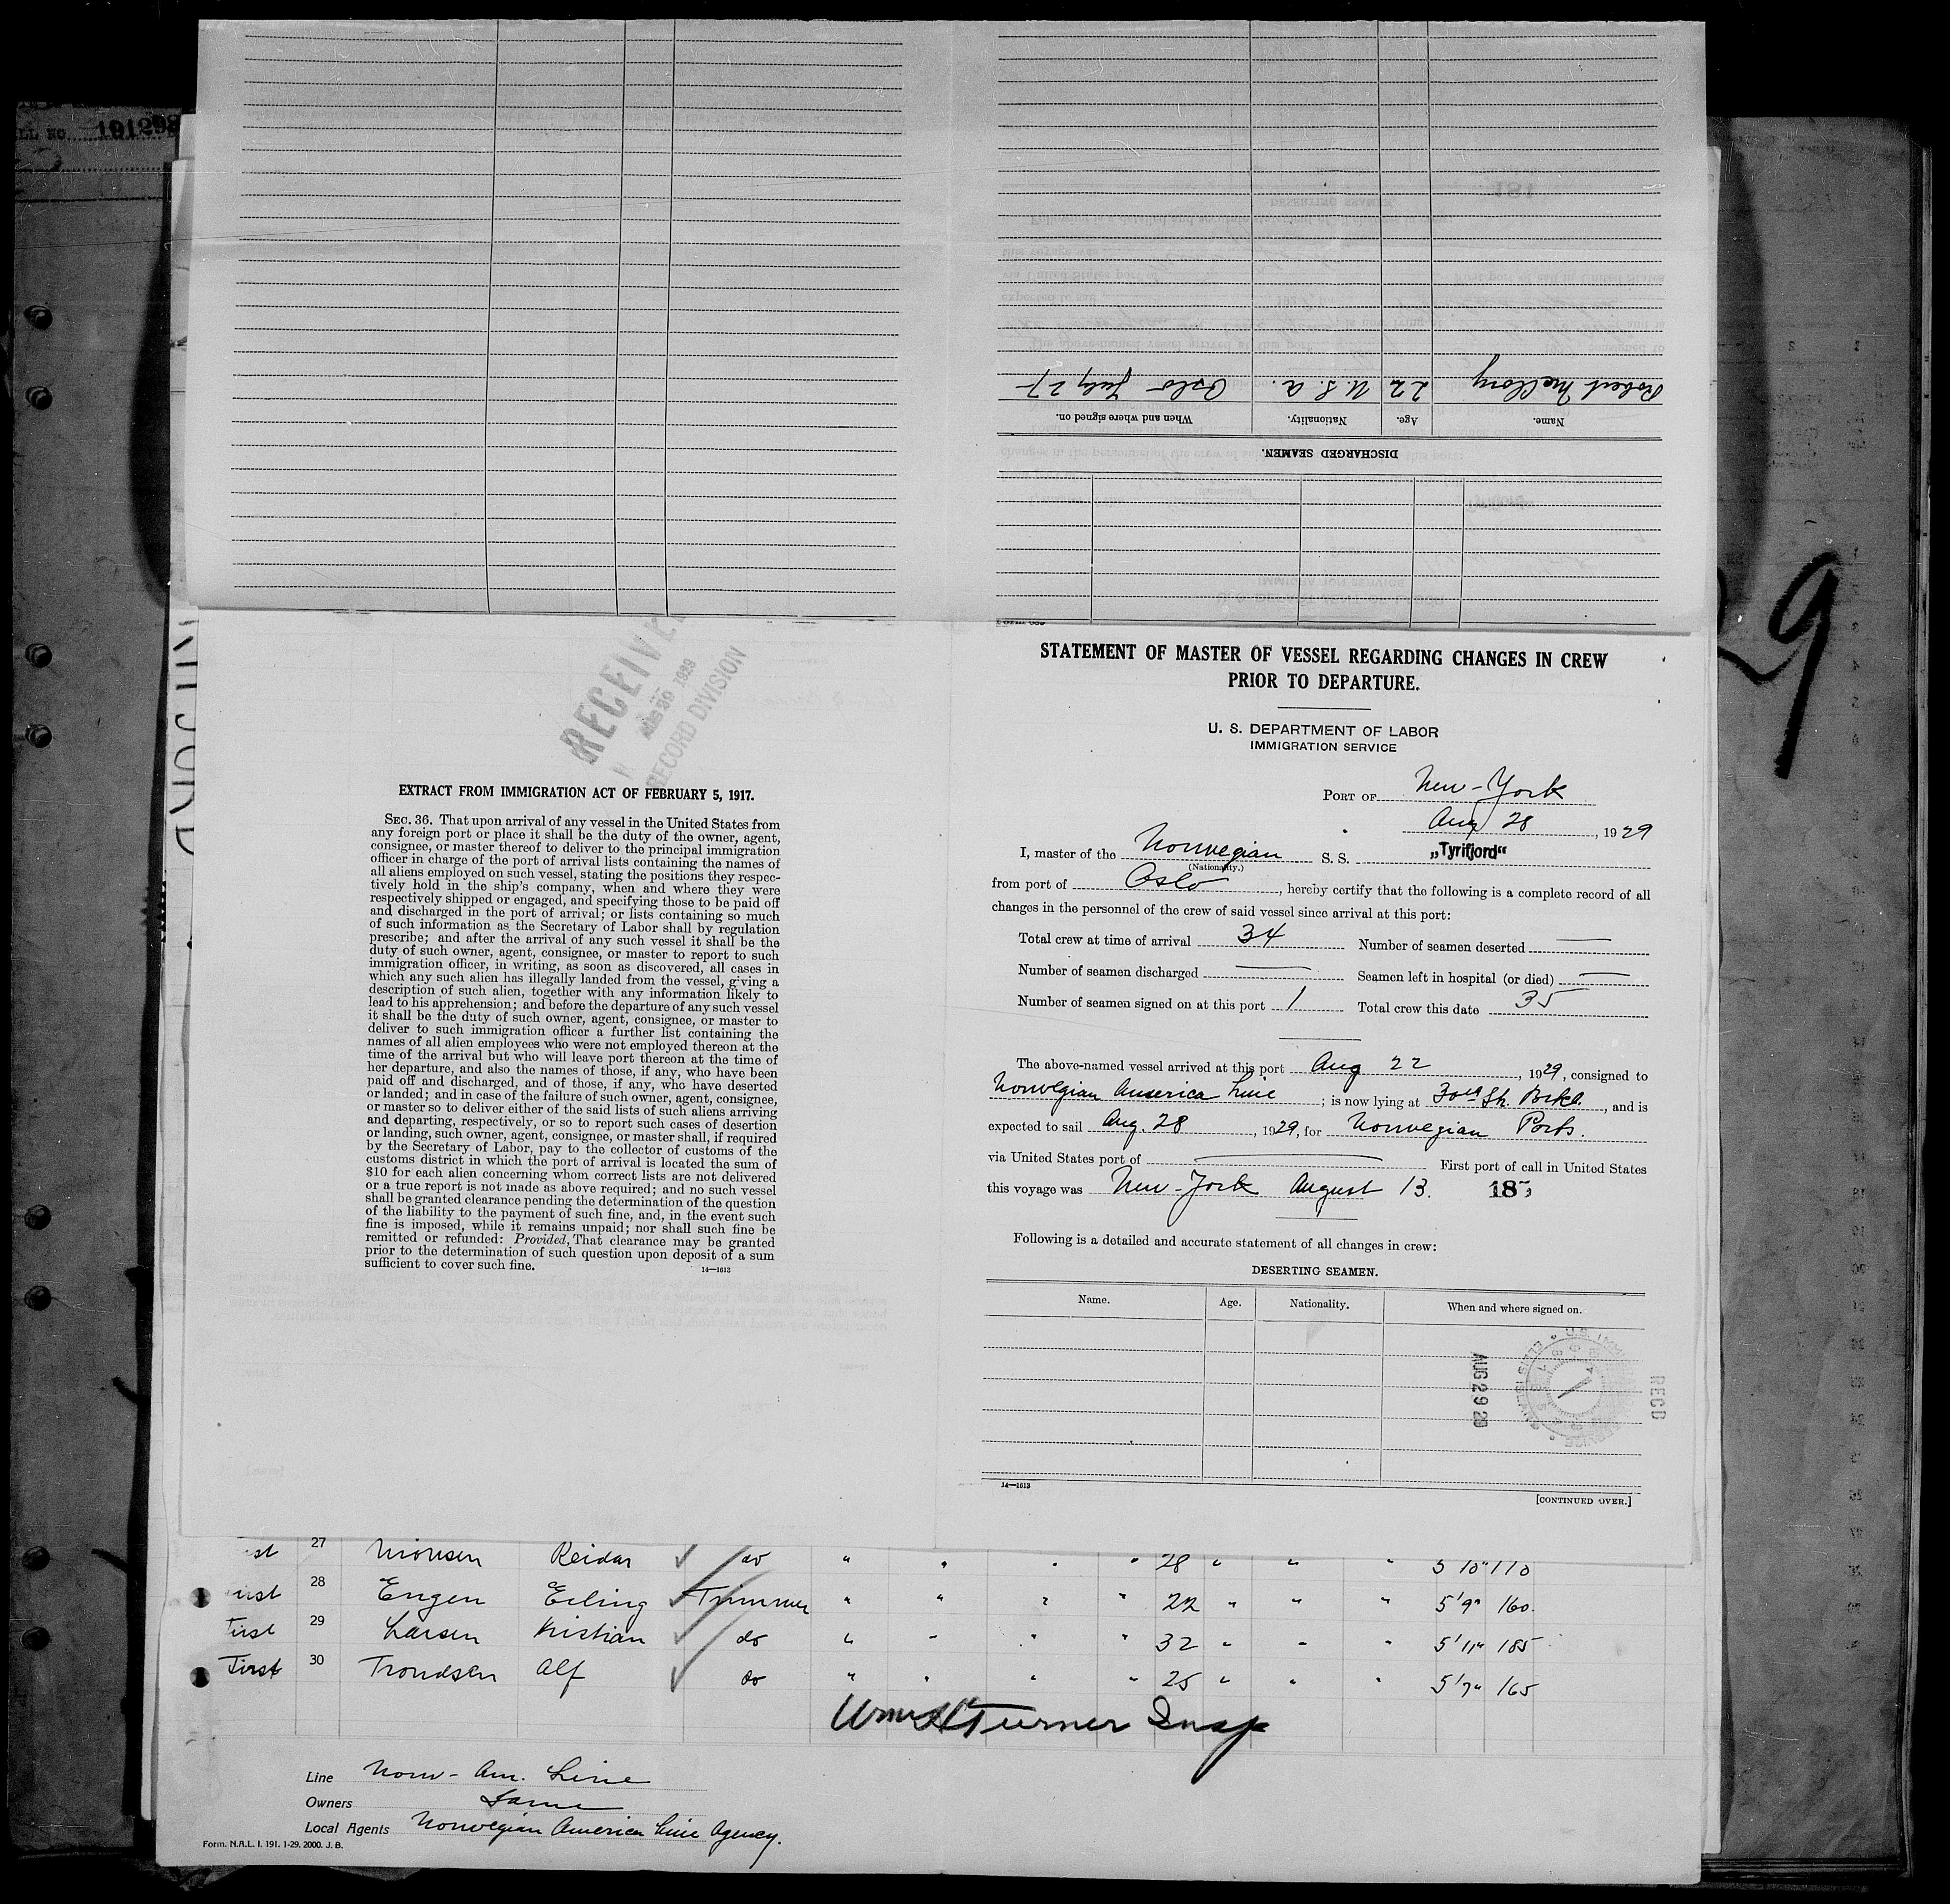 LL NO. 191298
Robert McClory 22 U. S. A. Oslo July 27
Name. Age. Nationality. When and where signed on.
DISCHARGED SEAMEN.
RECEIVED
RECORD DIVISION
EXTRACT FROM IMMIGRATION ACT OF FEBRUARY 5, 1917.
SEC. 36. That upon arrival of any vessel in the United States from
any foreign port or place it shall be the duty of the owner, agent,
consignee, or master thereof to deliver to the principal immigration
officer in charge of the port of arrival lists containing the names of
all aliens employed on such vessel, stating the positions they respec-
tively hold in the ship's company, when and where they were
respectively shipped or engaged, and specifying those to be paid off
and discharged in the port of arrival; or lists containing so much
of such information as the Secretary of Labor shall by regulation
prescribe; and after the arrival of any such vessel it shall be the
duty of such owner, agent, consignee, or master to report to such
immigration officer, in writing, as soon as discovered, all cases in
which any such alien has illegally landed from the vessel, giving a
description of such alien, together with any information likely to
lead to his apprehension; and before the departure of any such vessel
it shall be the duty of such owner, agent, consignee, or master to
deliver to such immigration officer a further list containing the
names of all alien employees who were not employed thereon at the
time of the arrival but who will leave port thereon at the time of
her departure, and also the names of those, if any, who have been
paid off and discharged, and of those, if any, who have deserted
or landed; and in case of the failure of such owner, agent, consignee,
or master so to deliver either of the said lists of such aliens arriving
and departing, respectively, or so to report such cases of desertion
or landing, such owner, agent, consignee, or master shall, if required
by the Secretary of Labor, pay to the collector of customs of the
customs district in which the port of arrival is located the sum of
$10 for each alien concerning whom correct lists are not delivered
or a true report is not made as above required; and no such vessel
shall be granted clearance pending the determination of the question
of the liability to the payment of such fine, and, in the event such
fine is imposed, while it remains unpaid; nor shall such fine be
remitted or refunded: Provided, That clearance may be granted
prior to the determination of such question upon deposit of a sum
sufficient to cover such fine.
14—1613
STATEMENT OF MASTER OF VESSEL REGARDING CHANGES IN CREW
PRIOR TO DEPARTURE.
U. S. DEPARTMENT OF LABOR
IMMIGRATION SERVICE
PORT OF New-York
Aug 28, 1929
I, master of the Norwegian S. S. „Tyrifjord"
(Nationality.)
from port of Oslo, hereby certify that the following is a complete record of all
changes in the personnel of the crew of said vessel since arrival at this port:
Total crew at time of arrival 34 Number of seamen deserted —
Number of seamen discharged — Seamen left in hospital (or died) —
Number of seamen signed on at this port 1 Total crew this date 35
The above-named vessel arrived at this port Aug 22, 1929, consigned to
Norwegian America Line; is now lying at 30th St. Bkl., and is
expected to sail Aug. 28, 1929, for Norwegian Ports.
via United States port of — First port of call in United States
this voyage was New-York August 13.
Following is a detailed and accurate statement of all changes in crew:
DESERTING SEAMEN.
Name. Age. Nationality. When and where signed on.
AUG 29 29
RECD
14—1613
[CONTINUED OVER.]
27 Monsen Reidar do " " " " 28 " " "
28 Engen Erling Trimmer " " " " 22 " " " 5'9" 160.
First 29 Larsen Kristian do " " " " 32 " " " 5'11" 185
First 30 Trondsen Alf do " " " " 25 " " " 5'7" 165
Wm H Turner Insp
Line Norw-Am. Line
Owners Same
Local Agents Norwegian America Line Agency.
Form. N.A.L. I. 191. 1-29. 2000. J. B.
29